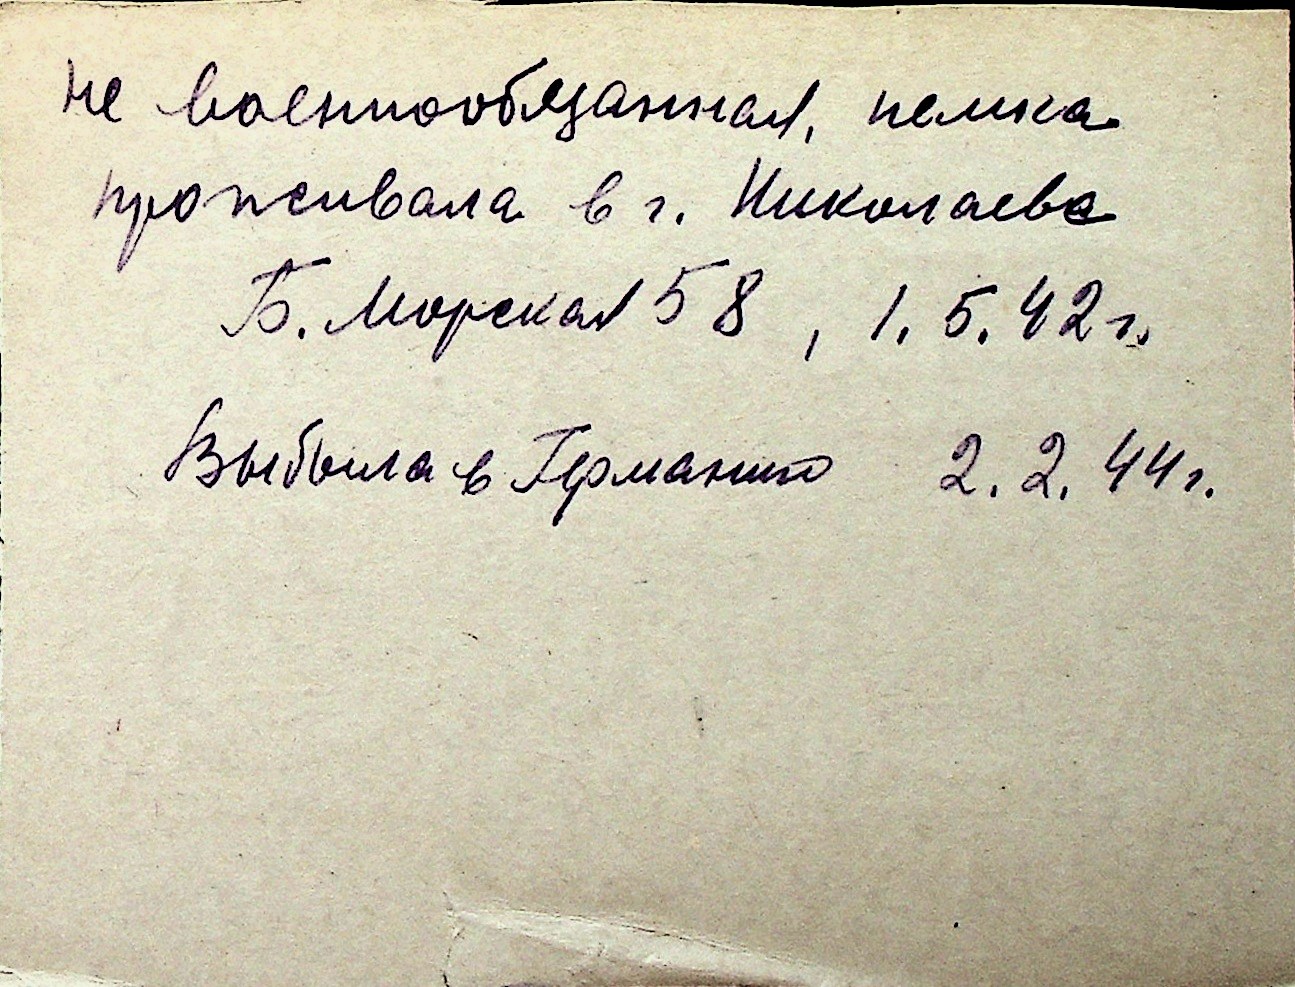 не военнообязанная, немка
проживала в г. Николаеве
Б. Морская 58, 1.5.42 г.
Выбыла в Германию 2.2.44 г.